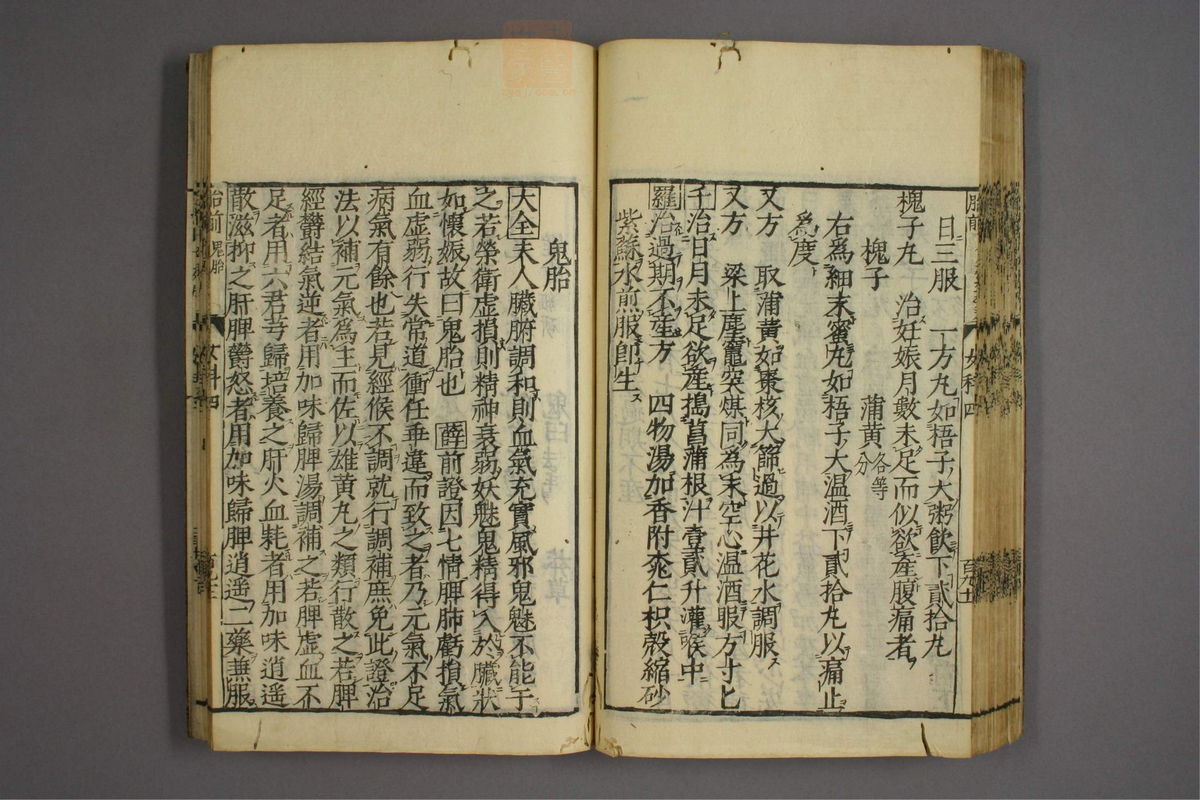 日三服　一方丸如梧子大粥飮下貳拾丸
槐子丸　治妊娠月數未足而似欲產腹痛者
槐子　蒲黄各等分
右爲細末蜜丸如梧子大温酒下貳拾丸以痛止
爲度
又方　取蒲黄如棗核大篩過以井花水調服
又方　梁上塵竈突煤同爲末空心温酒服方寸匕
千治日月未足欲產搗菖蒲根汁壹貳升灌喉中
羅治過期不產方　四物湯加香附桃仁枳殼縮砂
紫蘇水煎服卽生
鬼胎
大全夫人臟腑調和則血氣充實風邪鬼魅不能于
之若榮衛虛損則精神衰弱妖魅鬼精得入於臟狀
如懷娠故曰鬼胎也　薛前證因七情脾肺虧損氣
血虛弱行失常道衝任乖違而致之者乃元氣不足
病氣有餘也若見經候不調就行調補庶免此證治
法以補元氣爲主而佐以雄黄丸之類行散之若脾
經鬱結氣逆者用加味歸脾湯調補之若脾虛血不
足者用六君芎歸培養之肝火血耗者用加味逍遥
散滋抑之肝脾鬱怒者用加味歸脾逍遥二藥兼服
胎前　鬼胎
女科四